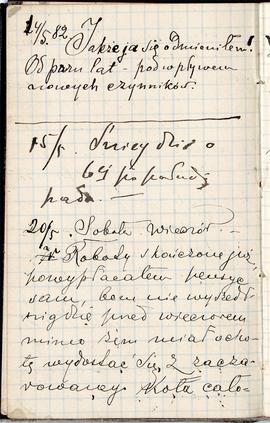 14/5. 82. Jakże ja się odmieniłem!
Od paru lat - pod wpływem
nowych czynników.
15/5. Śnieg dziś o
6ej po południu
pada. —
20/5. Sobota wieczór. —
Roboty skończone już,
powypłacałem pensye
sam, bom nie wyszedł
nigdzie przed wieczorem
mimo żem miał ocho-
tę wydostać się z zacza-
rowanego koła cało-